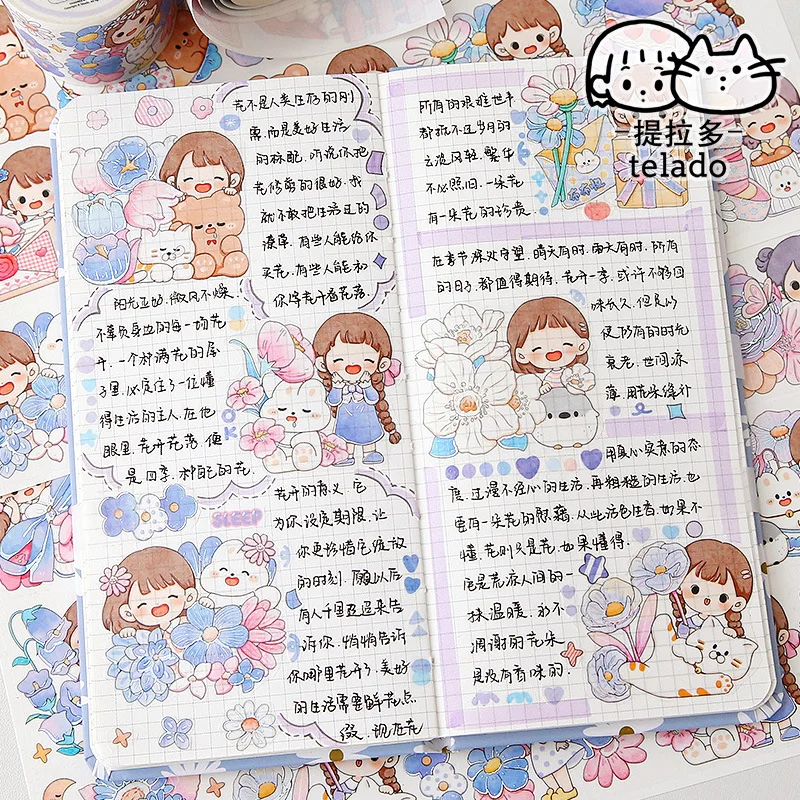 花不是人类生存的刚
需,而是美好生活
的标配,听说你把
花修剪的很好,我
就不敢把生活过的
潦草,有些人能给你
买花,有些人能和
你等花开看花落
阳光正好,微风不燥,
不辜负身边的每一场花
开,一个种满花的屋
子里,必定住了一位懂
得生活的主人,在他
眼里,花开花落,便
是四季,种乾的花.
OK
SLEEP
花开的意义,它
为你设定期限,让
你更珍惜它绽放
的时刻,愿以后
有人千里迢迢来告
诉你,悄悄告诉
你哪里花开了,美好
的生活需要鲜花点
缀,现在花
所有的艰难世事
都抵不过岁月的
云淡风轻,繁华
不必照旧,一朵花
有一朵花的珍贵.
在春节深处守望,晴天有时,雨天有时,所有
的日子,都值得期待,花开一季,或许不够回
味长久,但足以
使所有的时光
衰老,世间凉
薄,用花朵缝补
用真心实意的态
度,过漫不经心的生活,再粗糙的生活,也
要有一朵花的慰藉,从此活色生香,如果不
懂,花则只是花,如果懂得,
它是荒凉人间的一
抹温暖,永不
凋谢的花朵
是没有香味的.
提拉多
telado